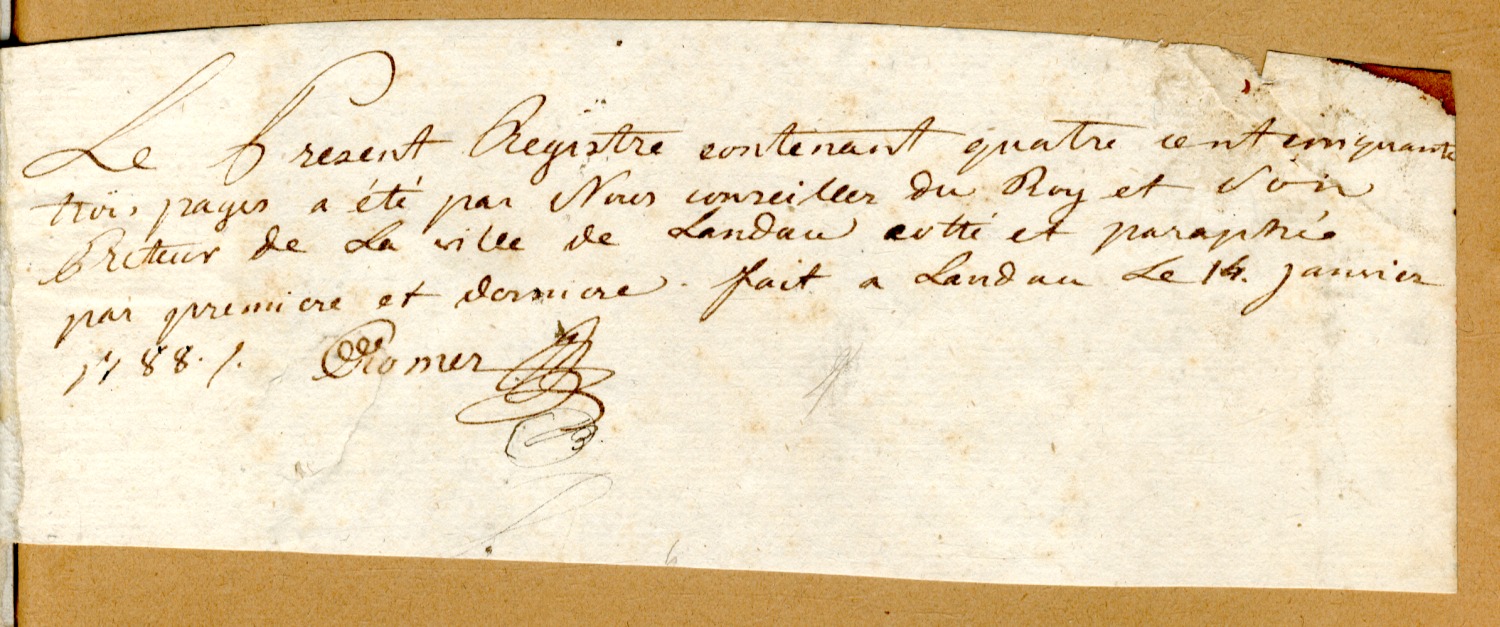 Le Present Regiṡtre contenant quatre cent cinquante
trois pages a été par Nous conseiller du Roy et Son
Preteur de La ville de Landau cotté et paraphé
par premiere et derniere. fait a Landau Le 14. janvier
1788. /. Romer